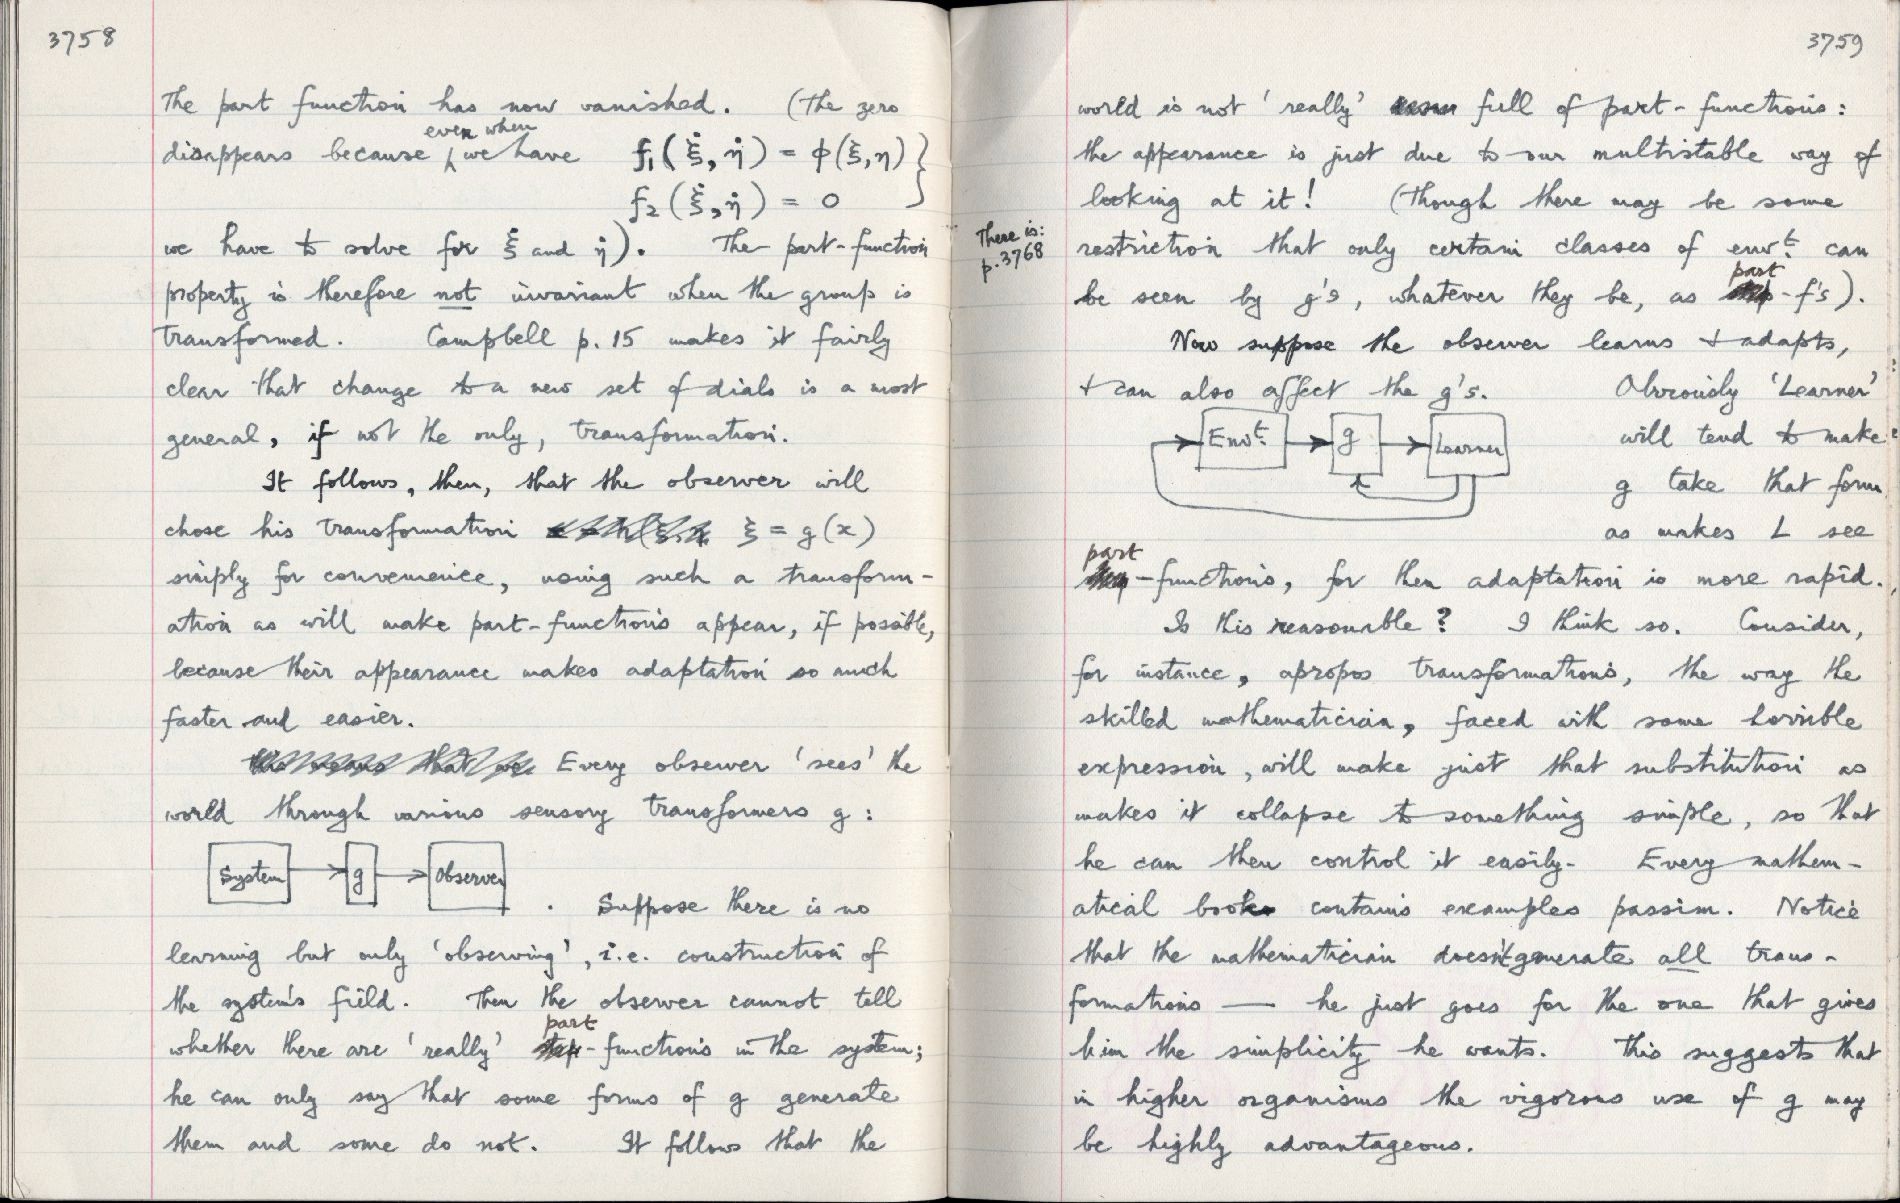 3758
The part function has now vanished. (The zero
even when
disappears because we have f₁(ξ̇, η̇) = φ(ξ, η)
f₂(ξ̇, η̇) = 0
we have to solve for ξ̇ and η̇). The part-function
property is therefore not invariant when the group is
transformed. Campbell p. 15 makes it fairly
clear that change to a new set of dials is a most
general, if not the only, transformation.
It follows, then, that the observer will
chose his transformation ξ = g(x)
simply for convenience, using such a transform-
ation as will make part-functions appear, if possible,
because their appearance makes adaptation so much
faster and easier.
Every observer 'sees' the
world through various sensory transformers g:
System g Observer
. Suppose there is no
learning but only 'observing', i.e. construction of
the system's field. Then the observer cannot tell
part
whether there are 'really' -functions in the system;
he can only say that some forms of g generate
them and some do not. It follows that the
3759
world is not 'really' full of part-functions:
the appearance is just due to our multistable way of
looking at it! (Though there may be some
There is:
p. 3768
restriction that only certain classes of envt. can
part
be seen by g's, whatever they be, as -f's).
Now suppose the observer learns + adapts,
+ can also affect the g's. Obviously 'Learner'
Envt. g Learner
will tend to make
g take that form
as makes L see
part
-functions, for then adaptation is more rapid.
Is this reasonable? I think so. Consider,
for instance, apropos transformations, the way the
skilled mathematician, faced with some horrible
expression, will make just that substitution as
makes it collapse to something simple, so that
he can then control it easily. Every mathem-
atical book contains examples passim. Notice
that the mathematician doesn't generate all trans-
formations — he just goes for the one that gives
him the simplicity he wants. This suggests that
in higher organisms the vigorous use of g may
be highly advantageous.